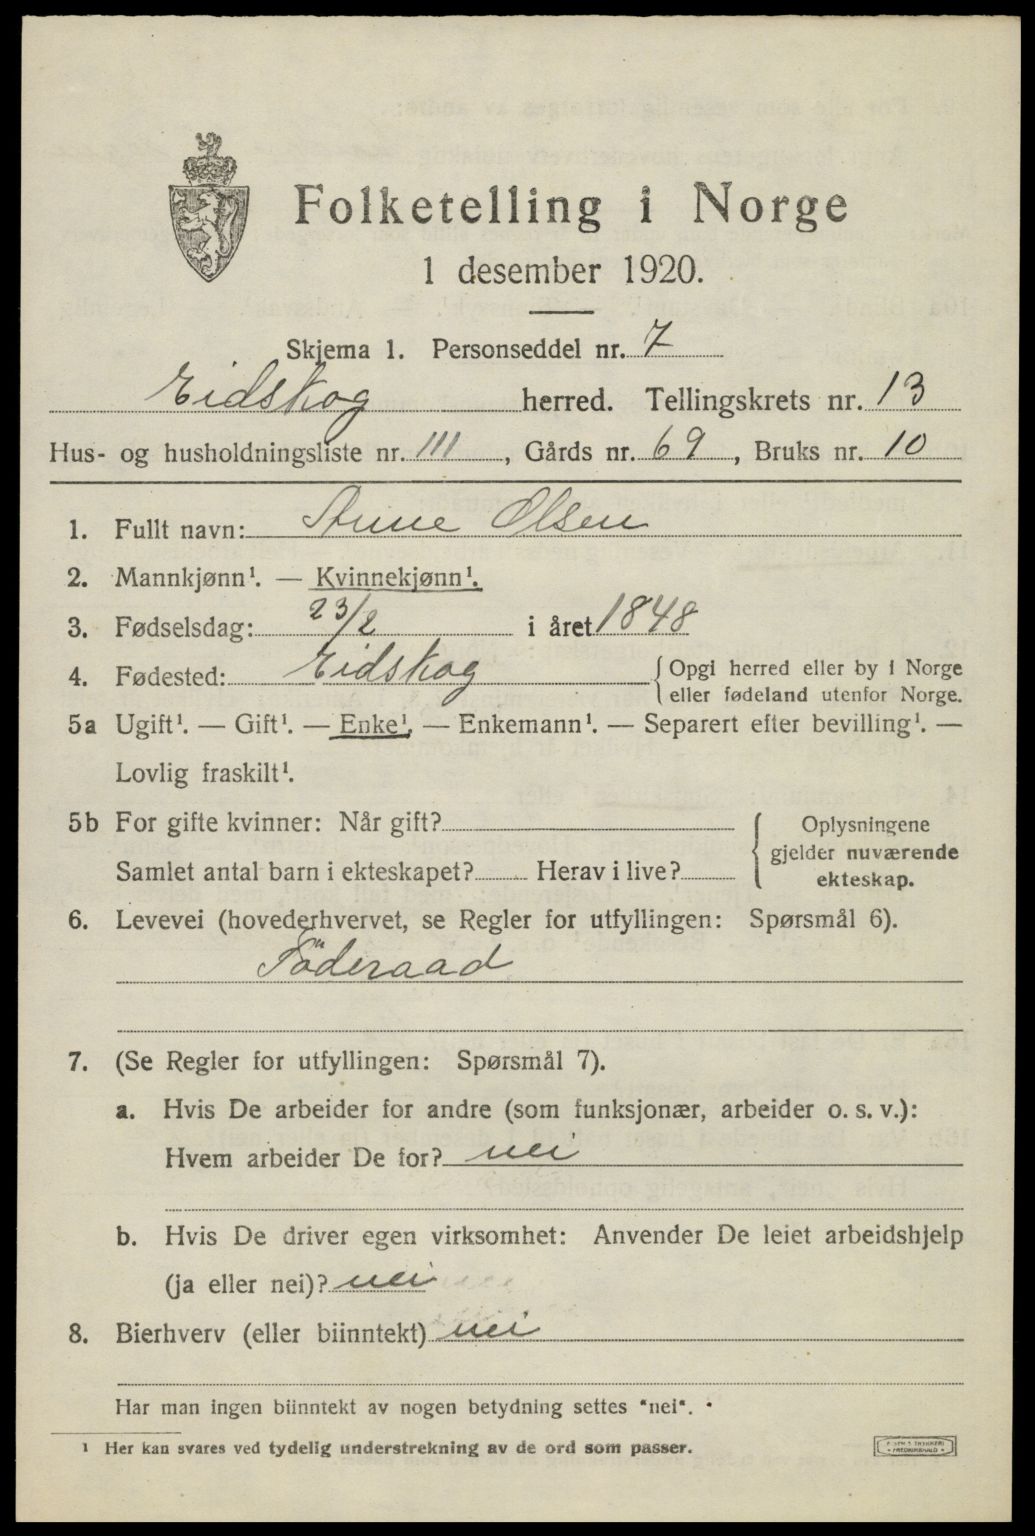 Folketelling i Norge
1 desember 1920.
Skjema 1. Personseddel nr. 7
Eidskog herred. Tellingskrets nr. 13
Hus- og husholdningsliste nr. 111, Gårds nr. 69, Bruks nr. 10
1. Fullt navn: Anne Olsen
2. Mannkjønn¹. — Kvinnekjønn¹.
3. Fødselsdag: 23/2 i året 1848
4. Fødested: Eidskog { Opgi herred eller by i Norge
eller fødeland utenfor Norge.
5a Ugift¹. — Gift¹. — Enke¹. — Enkemann¹. — Separert efter bevilling¹. —
Lovlig fraskilt¹.
5b For gifte kvinner: Når gift?
Samlet antal barn i ekteskapet? Herav i live?
{ Oplysningene
gjelder nuværende
ekteskap.
6. Levevei (hovederhvervet, se Regler for utfyllingen: Spørsmål 6).
Föderaad
7. (Se Regler for utfyllingen: Spørsmål 7).
a. Hvis De arbeider for andre (som funksjonær, arbeider o. s. v.):
Hvem arbeider De for? nei
b. Hvis De driver egen virksomhet: Anvender De leiet arbeidshjelp
(ja eller nei)? nei
8. Bierhverv (eller biinntekt) nei
Har man ingen biinntekt av nogen betydning settes "nei".
¹ Her kan svares ved tydelig understrekning av de ord som passer.